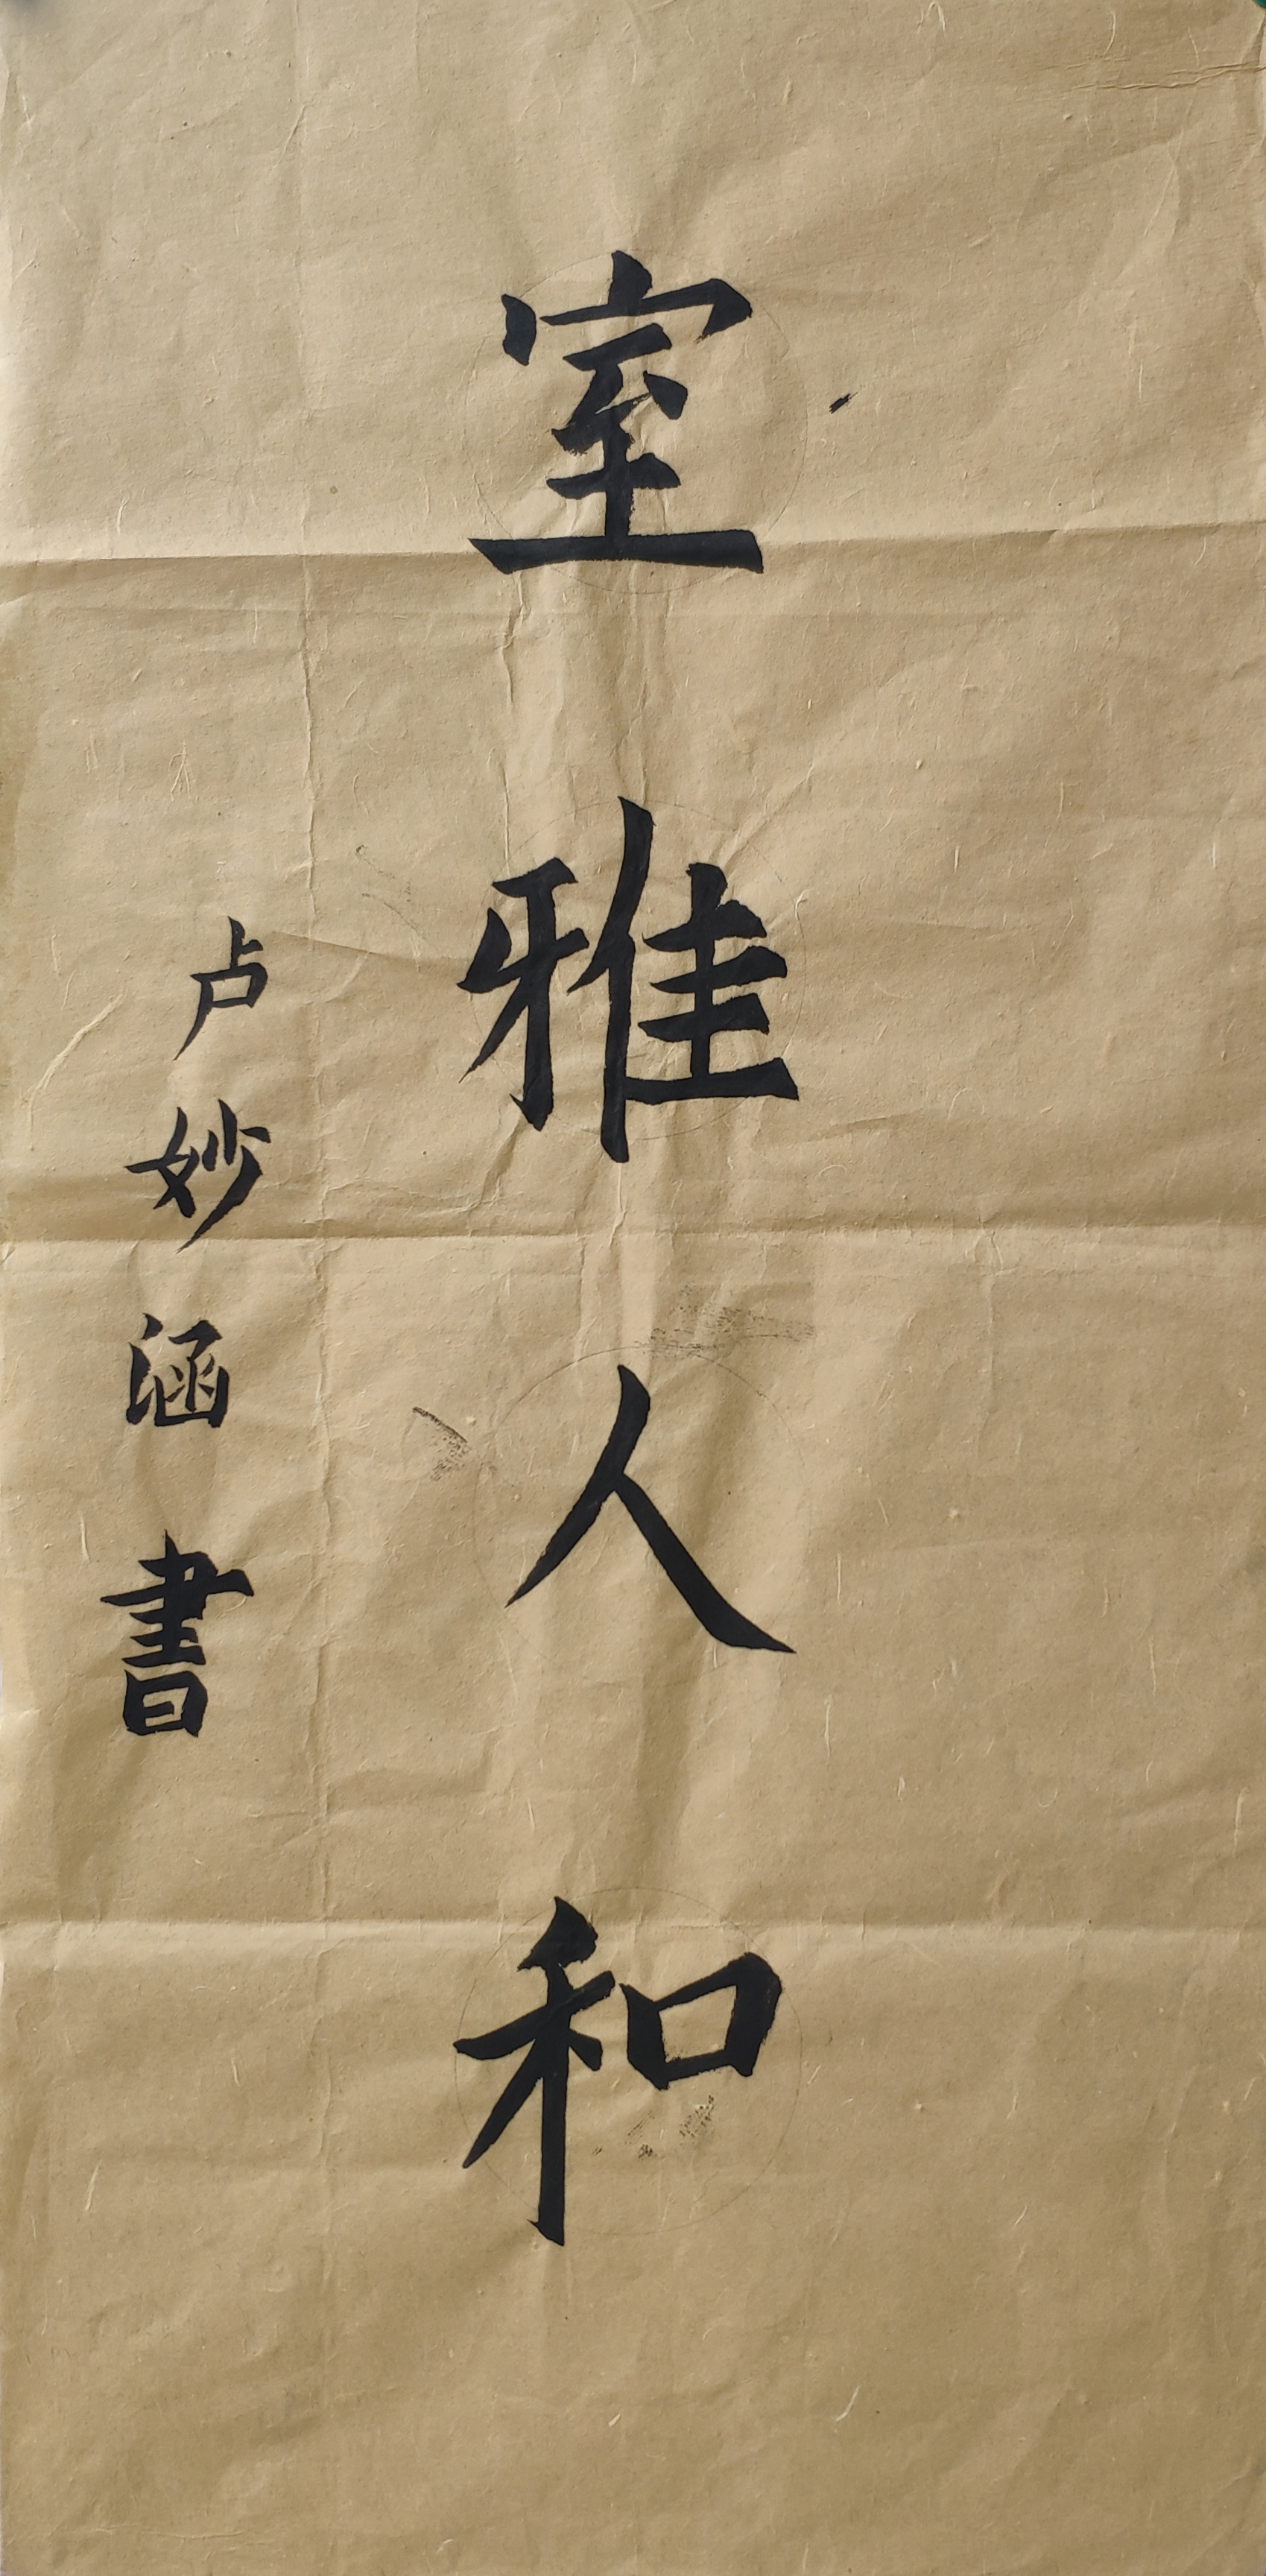 室雅人和
卢妙涵書